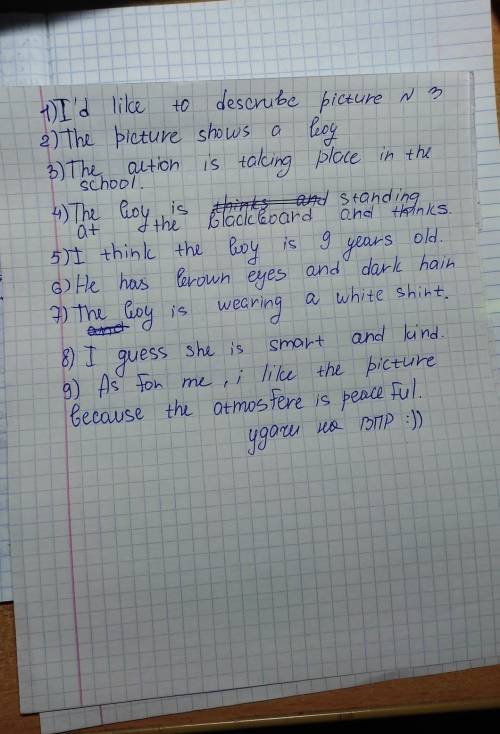 1) I'd like to describe picture N 3
2) The picture shows a boy
3) The aution is taking place in the
school.
4) The boy is thinks and standing
at the blackboard and thinks.
5) I think the boy is 9 years old.
6) He has brown eyes and dark hain
7) The boy is wearing a white shirt.
and
8) I guess she is smart and kind.
9) As for me, i like the picture
because the atmosfere is peaceful.
удачи на ВПР :))